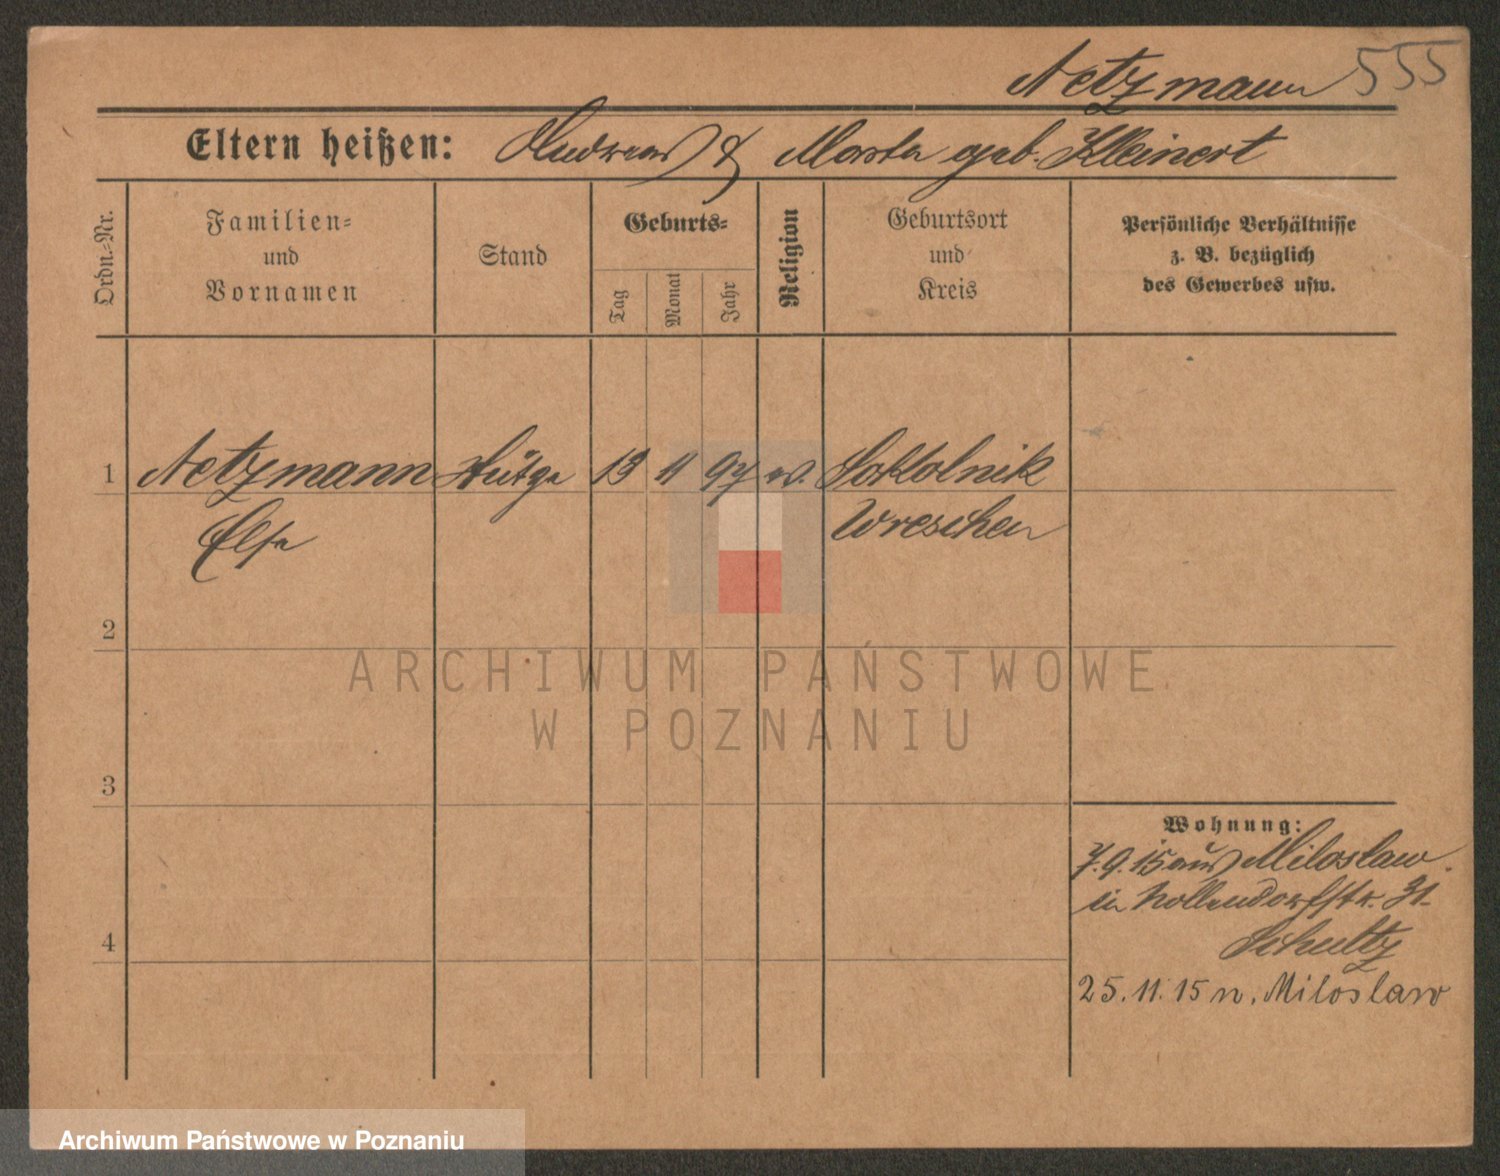 Netzmann 555
Eltern heißen: Andreas & Marta geb. Kleinert
Ordn.-Nr.
Familien-
und
Vornamen
Stand
Geburts-
Tag
Monat
Jahr
Religion
Geburtsort
und
Kreis
Persönliche Verhältnisse
z. B. bezüglich
des Gewerbes usw.
1 Netzmann Stütze 13 11 97 ev. Sokolnik
Else Wreschen
2
3
4
Wohnung:
7.9.15 aus Miloslaw
in Nollendorfstr. 31
Schultz
25.11.15 n. Miloslaw
ARCHIWUM PAŃSTWOWE
W POZNANIU
Archiwum Państwowe w Poznaniu